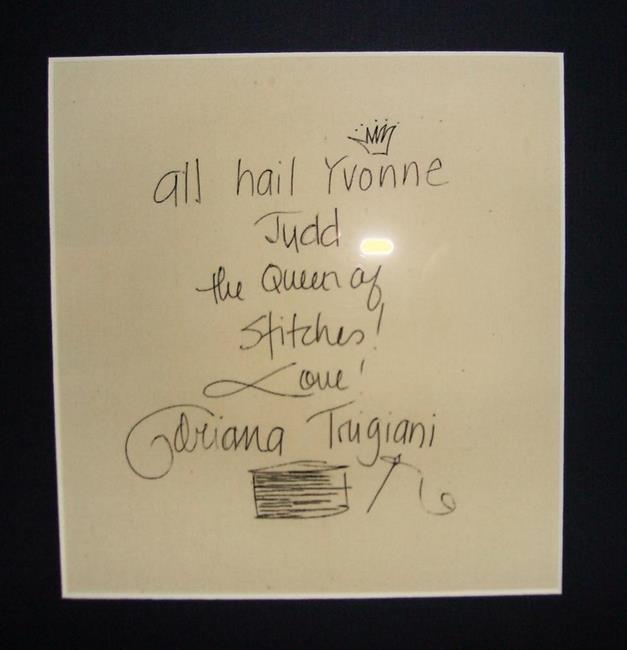 all hail Yvonne
Judd
the Queen of
Stitches!
Love!
Adriana Trigiani